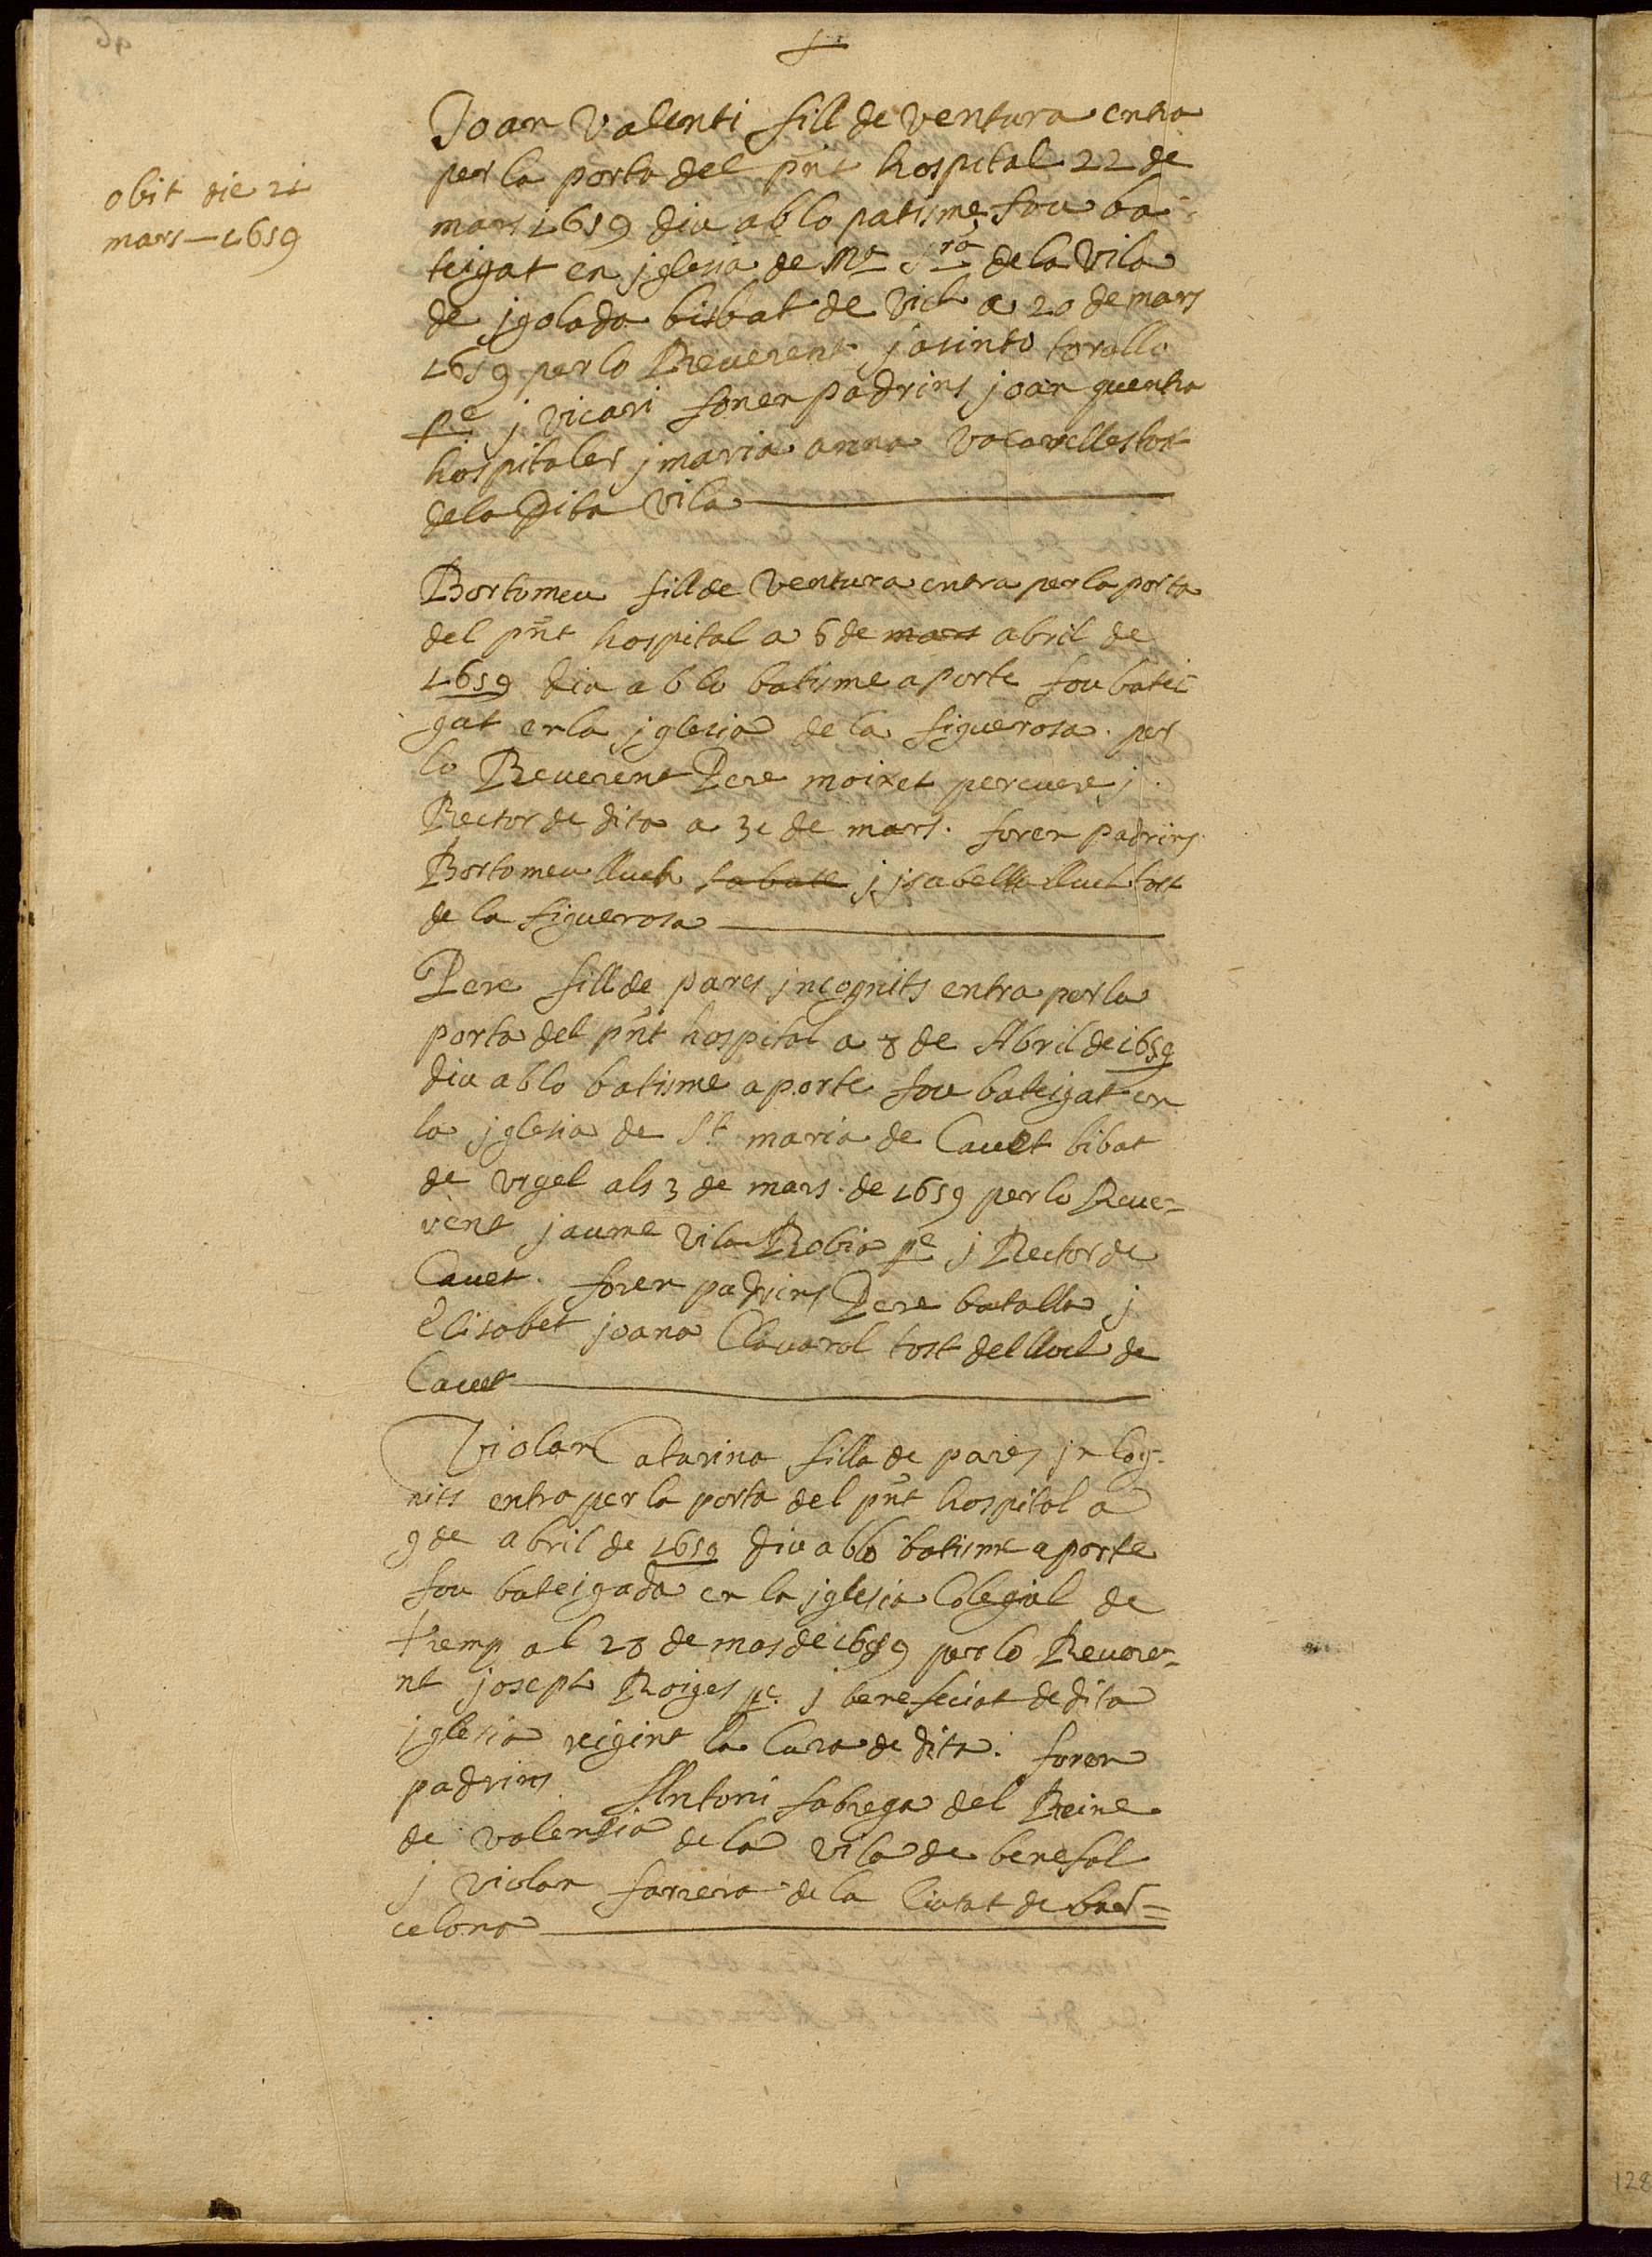 obit die 21
mars — 1659
Joan Valenti fill de ventura entra
per la porta del pnt hospital 22 de
mars 1659 diu ab lo patisme fou ba
teigat en jglesia de Na Sra de la Vila
de jgolada bisbat de Vich a 20 de mars
1659 per lo Reverent jasinto torallo
pe j vicari foren padrins joan
hospitaler j maria anna tost
de la Dita Vila
Bortomeu fill de Ventura entra per la porta
del pnt hospital a 6 de mars abril de
1659 diu ab lo batisme aporte fou batei
gat en la jglesia de la figuerosa. per
lo Reverent Pere moixet percuere j
Rector de dita a 31 de mars. foren padrins
Bortomeu lluch sabate j jsabella lluch tost
de la figuerosa
Pere fill de pares jncognits entra per la
porta del pnt hospital a 8 de Abril de 1659
diu ab lo batisme aporte fou bateigat en
la jglesia de St maria de Cauet bibat
de vrgel als 3 de mars. de 1659 per lo Reue-
rent jaume Vila Robia pe j Rector de
Cauet. foren padrins Pere batalla j
Elisabet joana Clauarol tost del lloch de
Cauet
Violan Catarina filla de pares jn cog-
nits entra per la porta del pnt hospital a
9 de abril de 1659 diu ab lo batisme aporte
fou bateigada en la jglesia Colegial de
tremp al 28 de mas de 1659 per lo Reuere-
nt joseph Roiges pe. j benefeciat de dita
jglesia regint la Cura de dita. foren
padrins Antoni fabrega del Reine
de valensia de la vila de benefal
j violan farrera de la Ciutat de bar=
celona
128